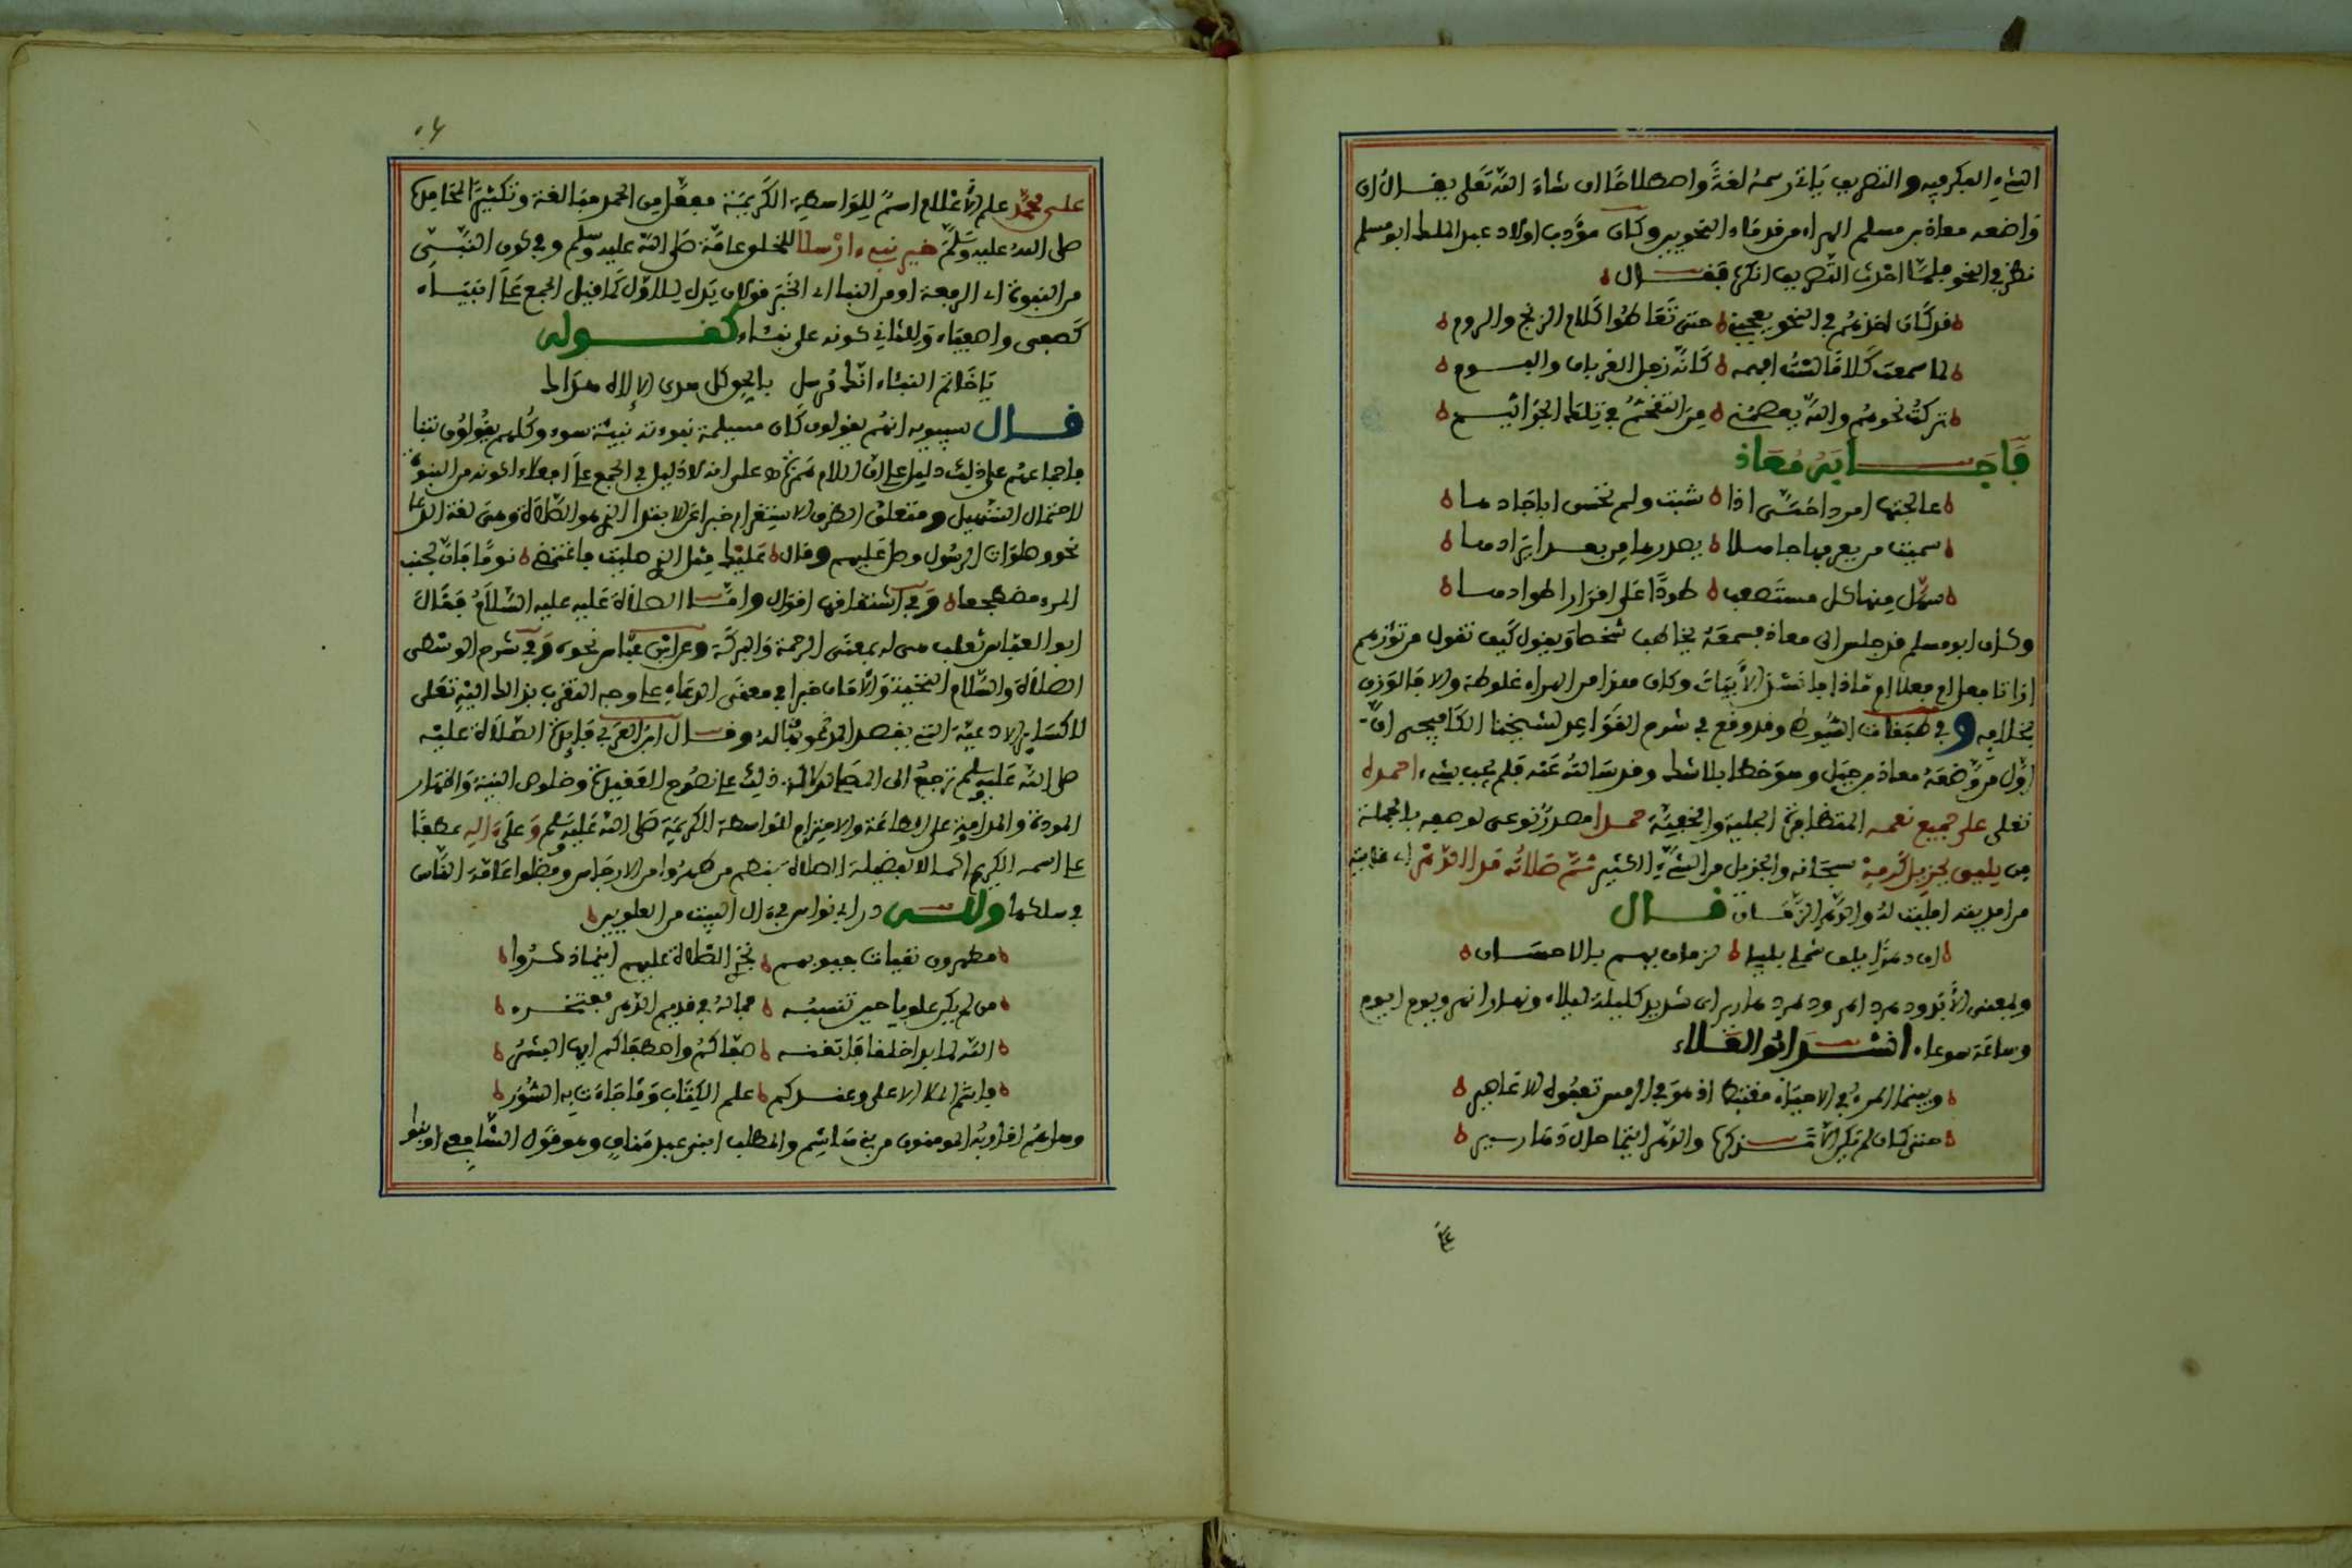 الشيء البكر فيه والتصريف يأتي رسمه لغة واصطلاحا ان شاء الله تعلى يقال ان
واضعه معاذ بن مسلم الهراء من قدماء النحويين وكان مؤدب اولاد عبد الملك ابو مسلم
نظر في النحو فلما احدث التصريف انكره فقال
قد كان اخذهم في النحو يعجبني حتى تعاطوا كلام الزنج والروم
لما سمعت كلاما لست افهمه كانه زجل الغربان والبوم
تركت نحوهم والله يعصمني من التقحم في تلك الجراثيم
فأجابه معاذ
عالجتها امرد احتى اذا شبت ولم تحسن اباجادها
سميت من يعرفها جاهلا يصدرها من بعد ايرادها
سهل منها كل مستصعب طودا على اقران اطوادها
وكان ابو مسلم قد جلس الى معاذ فسمعه يخاطب شخصا ويقول كيف تقول من تؤزهم
ازا يا فاعل افعل اع ماذا فانشد الأبيات وكان هذا من الهراء غلوطة والا فالوزن
بخلافه وفي طبقات السيوطي وقد وقع في شرح القواعد لشيخنا الكافيجي ان
اول من وضعه معاذ بن جبل وهو خطا بلا شك وقد سالته عنه فلم يجب بشيء احمده
تعلى على جميع نعمه المتظافرة الجلية والخفية حمدا مصدر نوعي لوصفه بالجملة
من يليق بجزيل كرمه سبحانه والجزيل من الشيء الكثير ثم صلاته مدا الدهر اي غايته
فال
ان دهرا يلف شملي بليلى لزمان يهم بالاحسان
وبمعنى الأبد ودهر داهر ودهر دهارير اى شديد كليلة ليلاء ونهار انهر ويوم ايوم
وساعة سوعاء انشد ابو العلاء
وبينما المرء في الاحياء مغتبطا اذ هو في الرمس تعفوه الاعاصير
حتى كان لم يكن الا تذكره والدهر ايتما حال دهارير
على محمد علم الأعلام اسم للواسطة الكريمة مفعل من الحمد مبالغة وتكثيرا لحامده
صلى الله عليه وسلم خير نبيء ارسلا للخلو عامة صلى الله عليه وسلم وفي كون النبي
من النبوة اي الرفعة او من النبا اي الخبر قولان يدل للاول كما قيل الجمع على انبياء
كصفي واصفياء وللثاني كونه على نبئاء كقوله
ياخاتم النبئاء انك مرسل بالحق كل هدى الاله هداك
قال سيبويه انهم يقولون كان مسيلمة نبوءته نبيئة سوء وكلهم يقولون تنبا
فاجماعهم على ذلك دليل على ان اللام همزة على انه لا دليل في الجمع على افعلاء لكونه من النبوة
لاحتمال التسهيل ومتعلق الظرف الاستقرار خبرا عن الابتدا الذي هو الصلاة وهي لغة الدعا
نحو وصلوات الرسول وصل عليهم وقال عليك مثل الذي صليت فاغتمضي نوما فان لجنب
المرء مضطجعا وفي اشتقاقها اقوال واما الصلاة عليه عليه السلام فقال
ابو العباس ثعلب هي له بمعنى الرحمة والبركة وعن ابن عباس نحوه وفي شرح الوسطى
الصلاة والسلام التحية والأمان خبرا في معنى الدعاء على وجه التقرب بذالك اليه تعلى
لا كسائر الادعية التي يقصد المدعو بها له وقال ابن العربي فائدة الصلاة عليه
صلى الله عليه وسلم ترجع الى المصلى لدلالة ذلك على نصوح العقيدة وخلوص النية واظهار
المودة والمداومة على الطاعة والاحترام للواسطة الكريمة صلى الله عليه وسلم وعلى اله عطفا
على اسمه الكريم اكمالا لفضيلة الصلاة بنظم من طهروا من الارجاس ونظوا عامة الناس
في سلكها ولله در ابي نواس في ءال البيت من العلويين
مطهرون نقيات جيوبهم تجري الصلاة عليهم اينما ذكروا
من لم يكن علويا حين تنسبه فماله في قديم الدهر مفتخر
الله لما برا خلقا فاتقنه صفاكم واصطفاكم ايها البشر
فانتم الملا الاعلى وعندكم علم الكتاب وما جاءت به السور
وهاءلهم اقاربه المومنون من بني هاشم والمطلب ابني عبد مناف وهو قول الشافعي او بنو